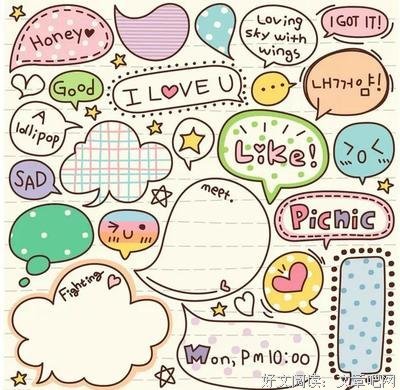 Honey♥
Loving
sky with
wings
I GOT IT!
Good
I L♥VE U
...
내꺼얌!
A
lollipop
Like!
>o<
SAD
meet.
Picnic
Fighting
Mon, Pm 10:00
好文阅读：文章吧网